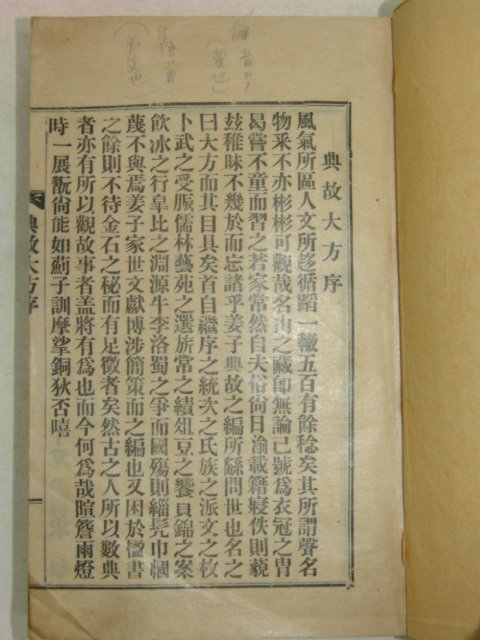 典故大方序
風氣所區人文所趍循蹈一轍五百有餘稔矣其所謂聲名
物釆不亦彬彬可觀哉名山之藏卽無論已號爲衣冠之冑
曷嘗不童而習之若家常然自夫俗尙日渝載籍寖佚則藐
玆稚昧不幾於而忘諸乎姜子典故之編所繇問世也名之
曰大方而其目具矣首自繼序之統次之氏族之派文之枚
卜武之受脤儒林藝苑之選旂常之績俎豆之饗貝錦之案
飮冰之行臯比之淵源牛李洛蜀之爭而國殤則緇髡巾幗
蔑不與焉姜子家世文獻博涉簡策而之編也又困於楹書
之餘則不待金石之秘而有足徵者矣然古之人所以數典
者亦有所以觀故事者盖將有爲也而今何爲哉暄簷雨燈
時一展翫尙能如薊子訓摩挲銅狄否嘻
典故大方序